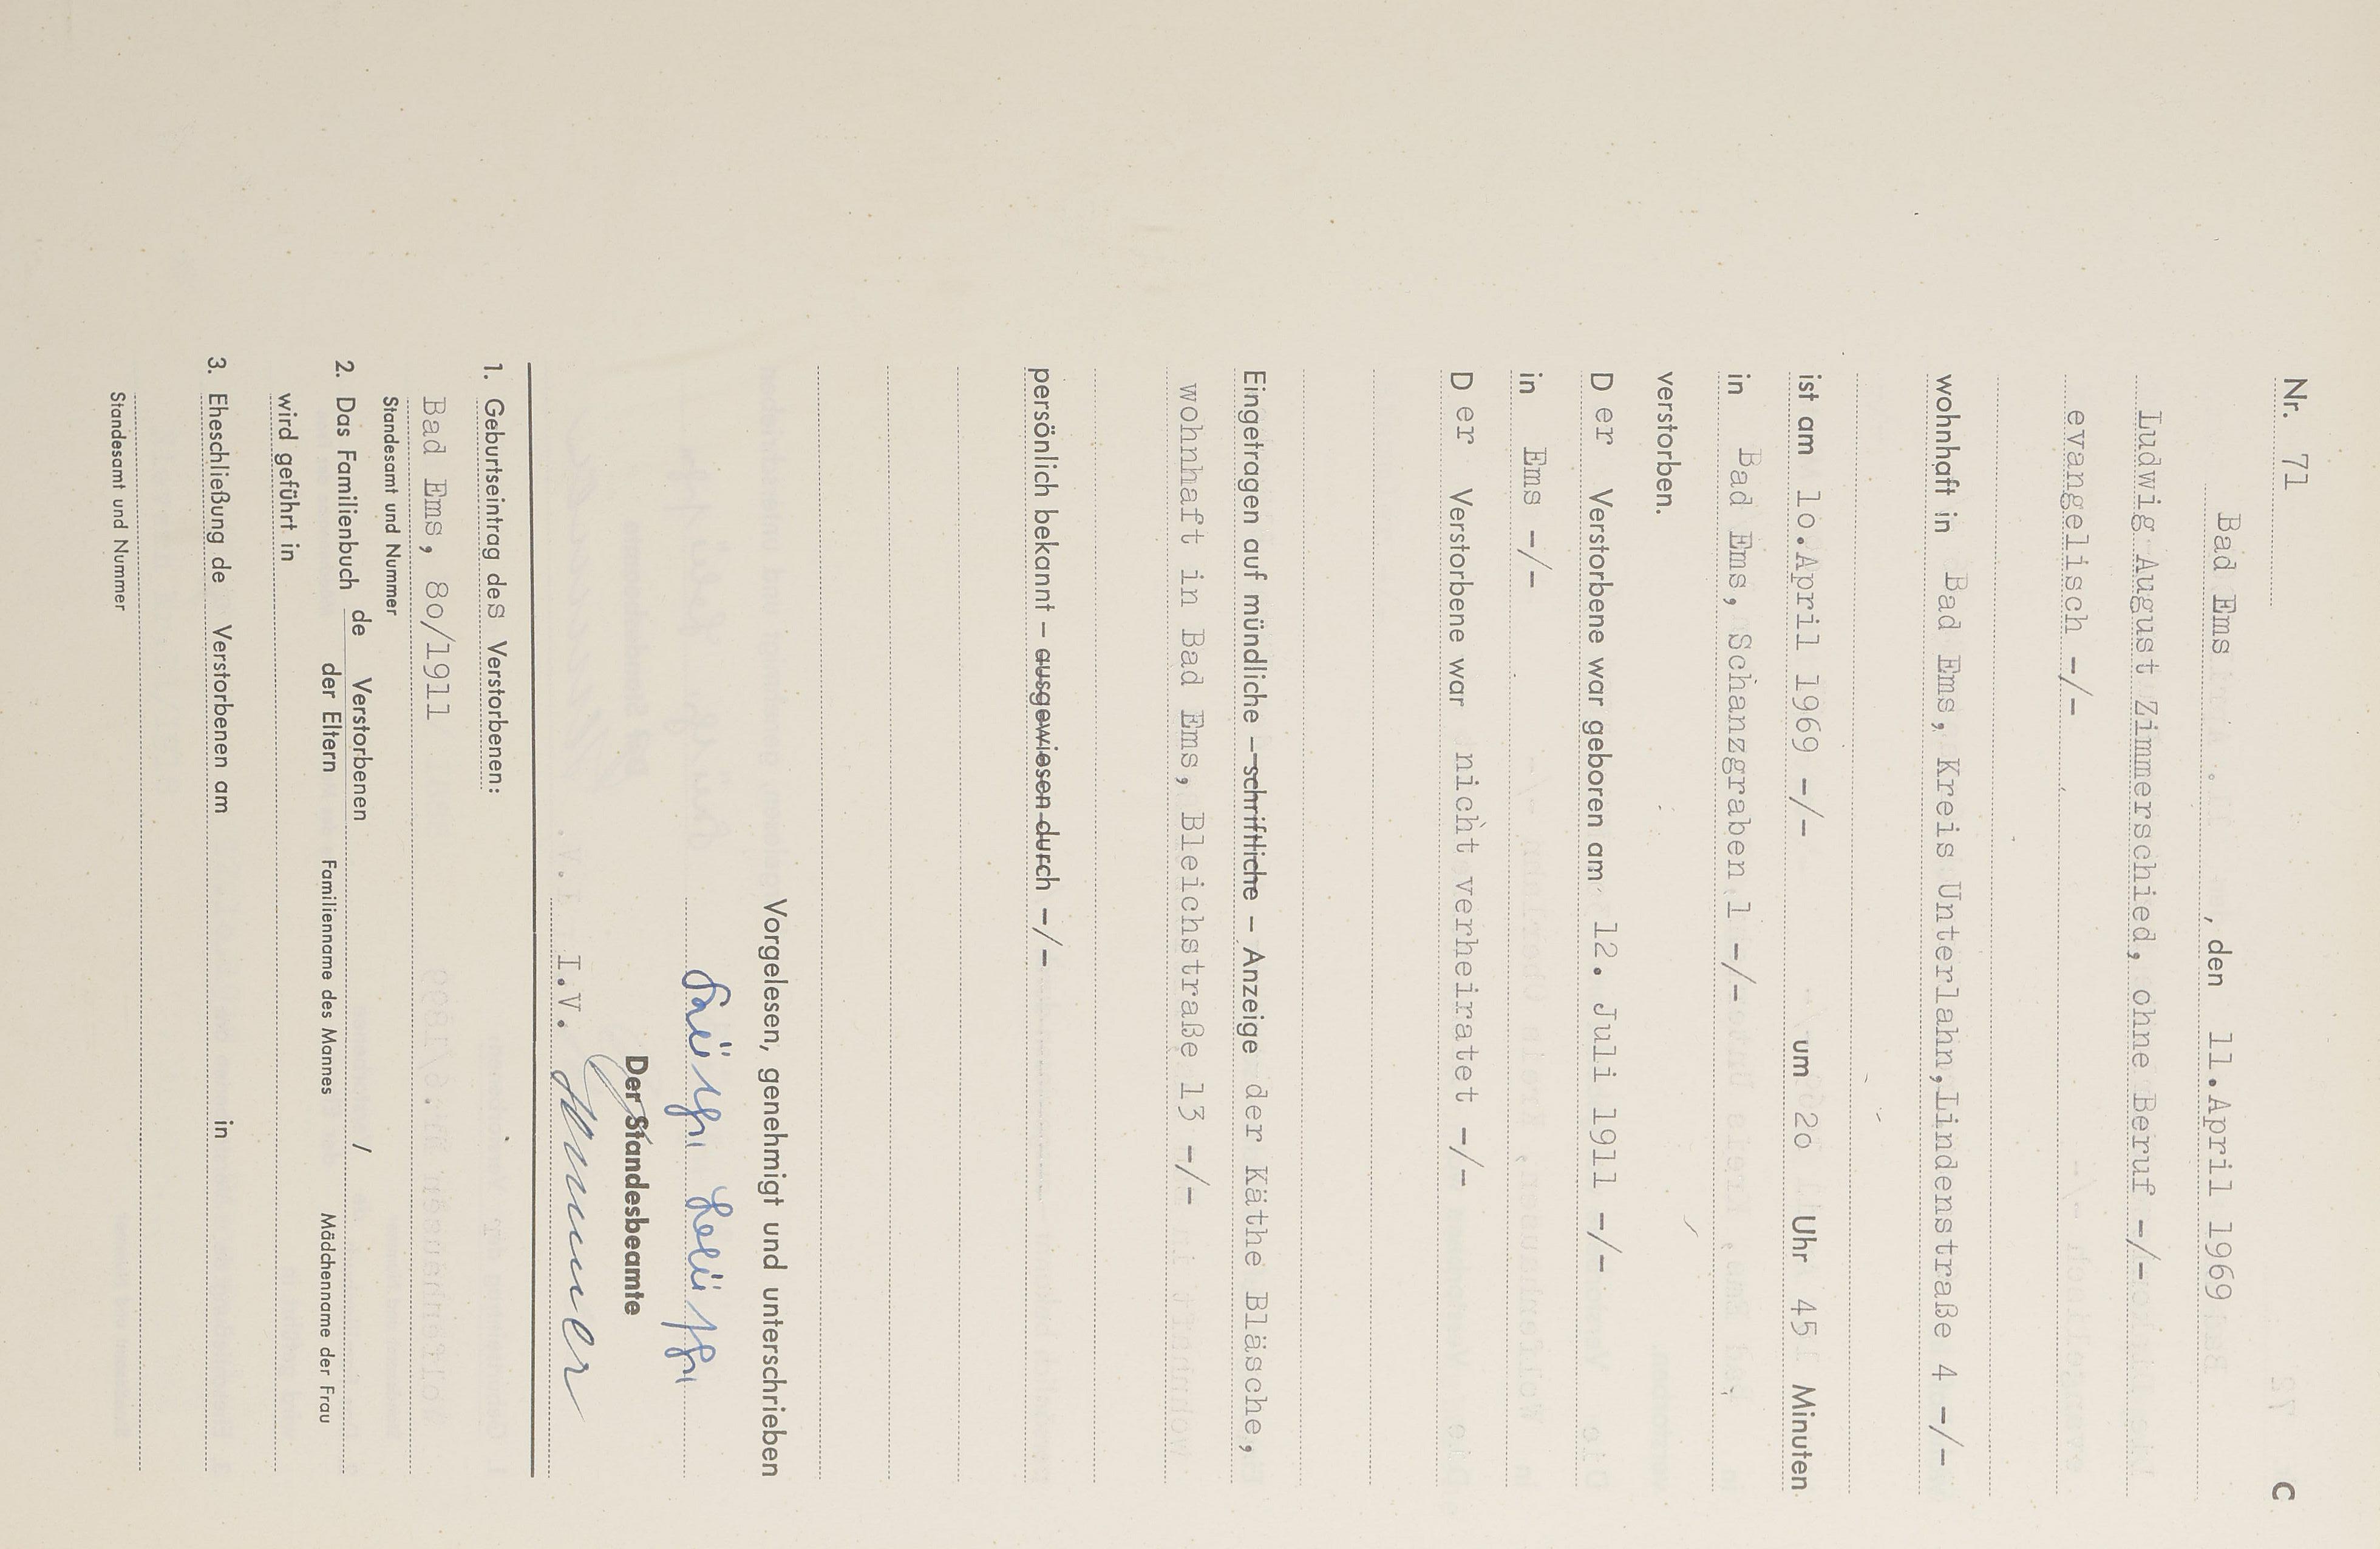 Nr. 71 C
Bad Ems , den 11.April 1969
Ludwig August Zimmerschied, ohne Beruf -/-
evangelisch -/-
wohnhaft in Bad Ems, Kreis Unterlahn,Lindenstraße 4 -/-
ist am 1o.April 1969 -/- um 2o Uhr 45 Minuten
in Bad Ems, Schanzgraben 1 -/-
verstorben.
D er Verstorbene war geboren am 12. Juli 1911 -/-
in Ems -/-
D er Verstorbene war nicht verheiratet -/-
Eingetragen auf mündliche – schriftliche – Anzeige der Käthe Bläsche,
wohnhaft in Bad Ems, Bleichstraße 13 -/-
persönlich bekannt – ausgewiesen durch -/-
Vorgelesen, genehmigt und unterschrieben
Der Standesbeamte
I.V.
1. Geburtseintrag des Verstorbenen:
Bad Ems, 8o/1911
Standesamt und Nummer
2. Das Familienbuch de Verstorbenen /
der Eltern Familienname des Mannes Mädchenname der Frau
wird geführt in
3. Eheschließung de Verstorbenen am in
Standesamt und Nummer